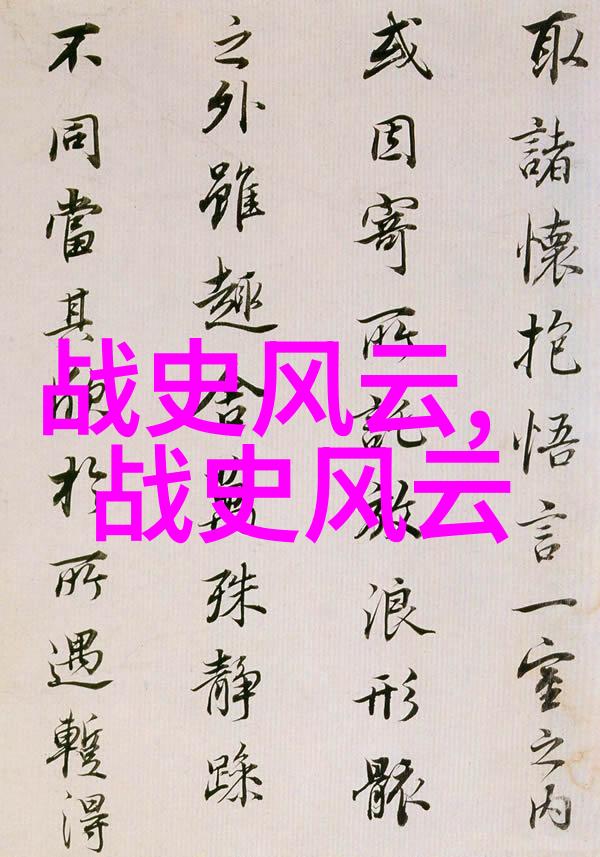 取諸懷抱悟言一室之内
或因寄所託放浪形骸
之外雖趣舍萬殊静躁
不同當其欣於所遇暫得
战史风云,
战史风云